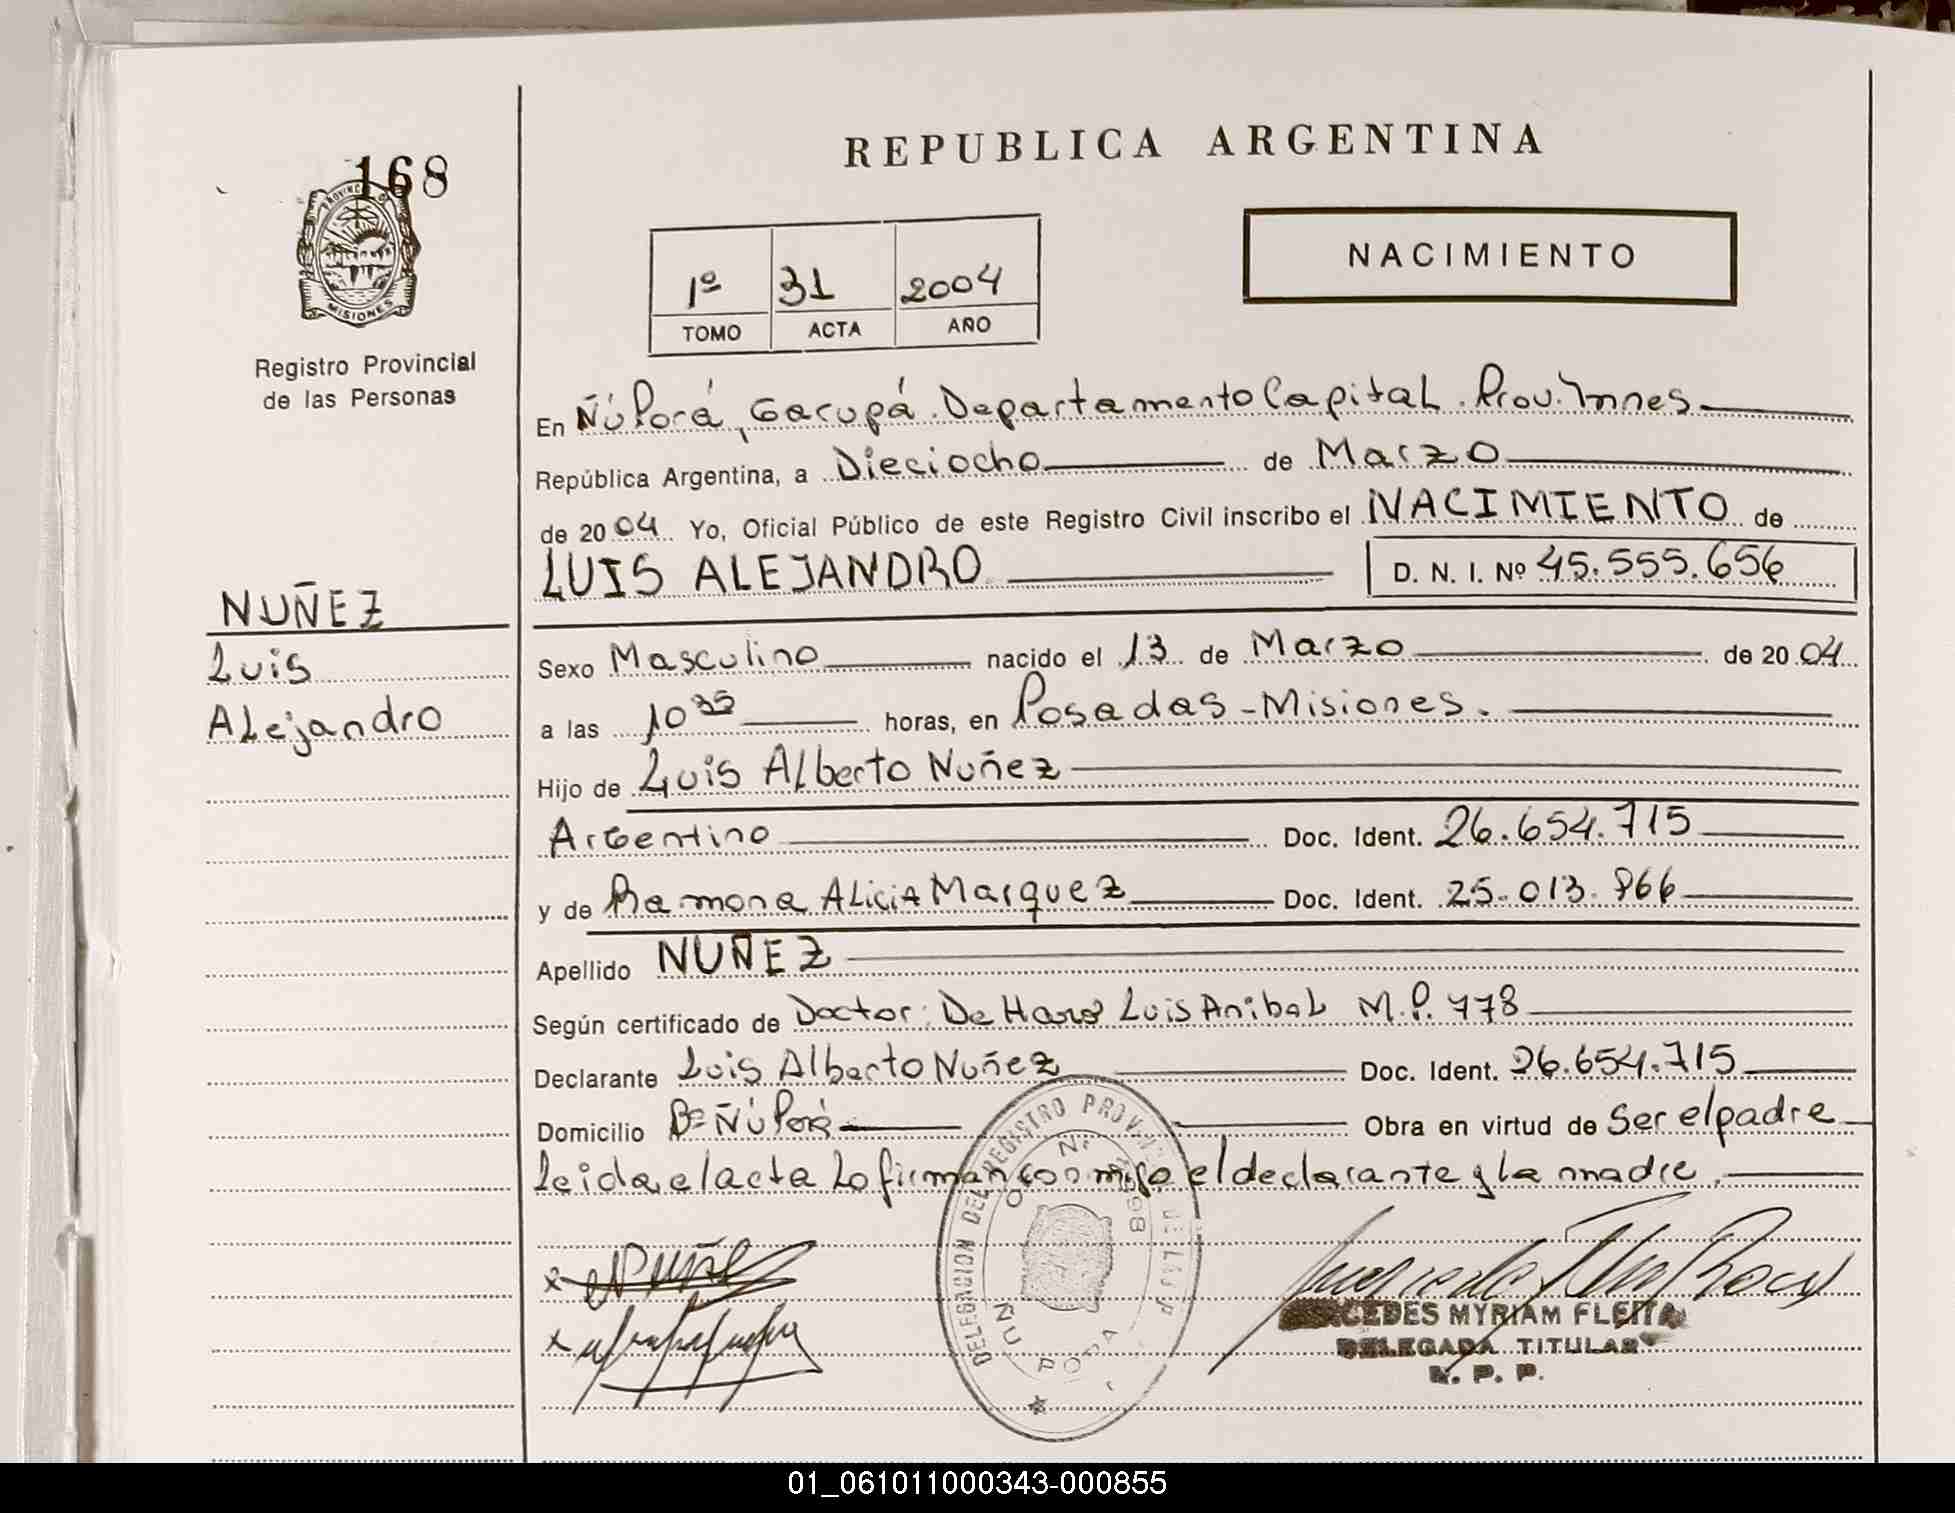 168
PROVINCIA
MISIONES
Registro Provincial
de las Personas
NUÑEZ
Luis
Alejandro
REPUBLICA ARGENTINA
1º 31 2004
TOMO ACTA AÑO
NACIMIENTO
En Ñú Porá, Garupá. Departamento Capital. Prov. Mnes
República Argentina, a Dieciocho de Marzo
de 2004 Yo, Oficial Público de este Registro Civil inscribo el NACIMIENTO de
LUIS ALEJANDRO D. N. I. Nº 45.555.656
Sexo Masculino nacido el 13 de Marzo de 2004
a las 10 35 horas, en Posadas - Misiones.
Hijo de Luis Alberto Nuñez
Argentino Doc. Ident. 26.654.715
y de Ramona Alicia Marquez Doc. Ident. 25.013.866
Apellido NUÑEZ
Según certificado de Doctor: De Haro Luis Anibal M.P. 778
Declarante Luis Alberto Nuñez Doc. Ident. 26.654.715
Domicilio Bº Ñú Porá Obra en virtud de Ser el padre
Leida el acta Lo firman conmigo el declarante y La madre.
DELEGACION DEL REGISTRO
ÑU PORA
MERCEDES MYRIAM FLEITA
DELEGADA TITULAR
R. P. P.
01_061011000343-000855